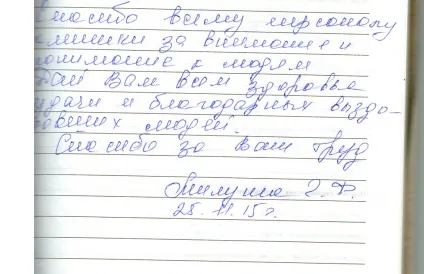 Спасибо всему персоналу
клиники за внимание и
понимание к людям
Дай Вам всем здоровье
удачи и благодарных выздо-
ровевших людей.
Спасибо за Ваш труд
25.11.15г.